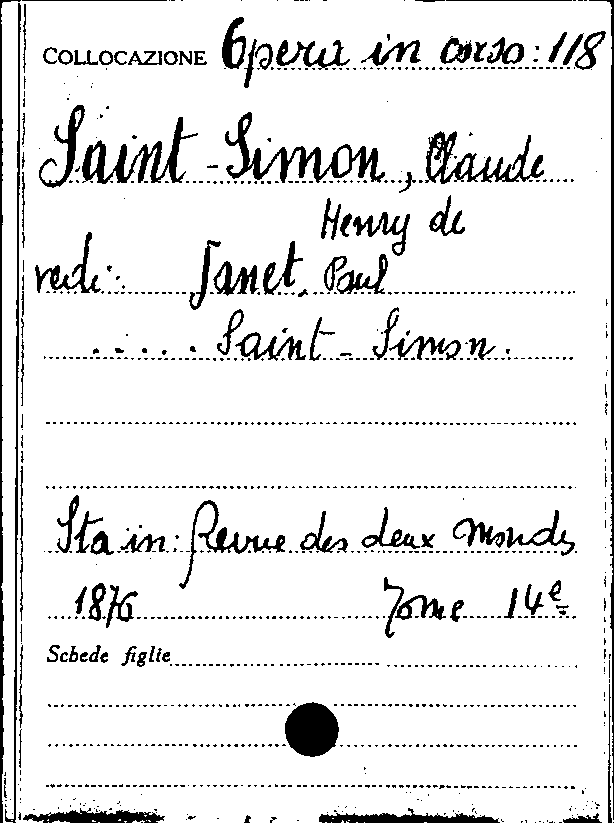 COLLOCAZIONE Opera in corso: 118
Saint-Simon, Claude
Henry de
vedi: Janet, Paul
..... Saint-Simon.
Sta in: Revue des deux Mondes
1876 Tome 14e
Schede figlie